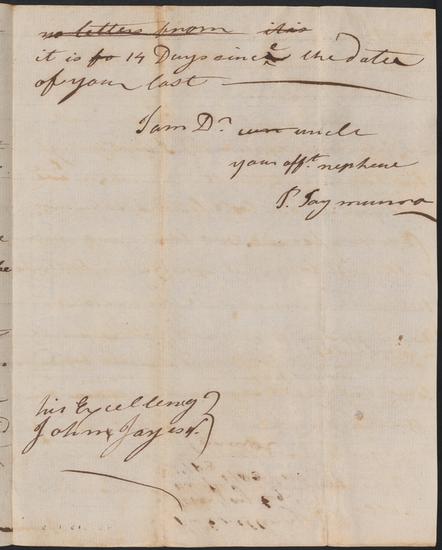 no letters from it is
it is fo 14 Days since the date
of your last
I am Dr. uncle
your afft. nephew
P. Jay munro
his Excellency
John Jay esqr.